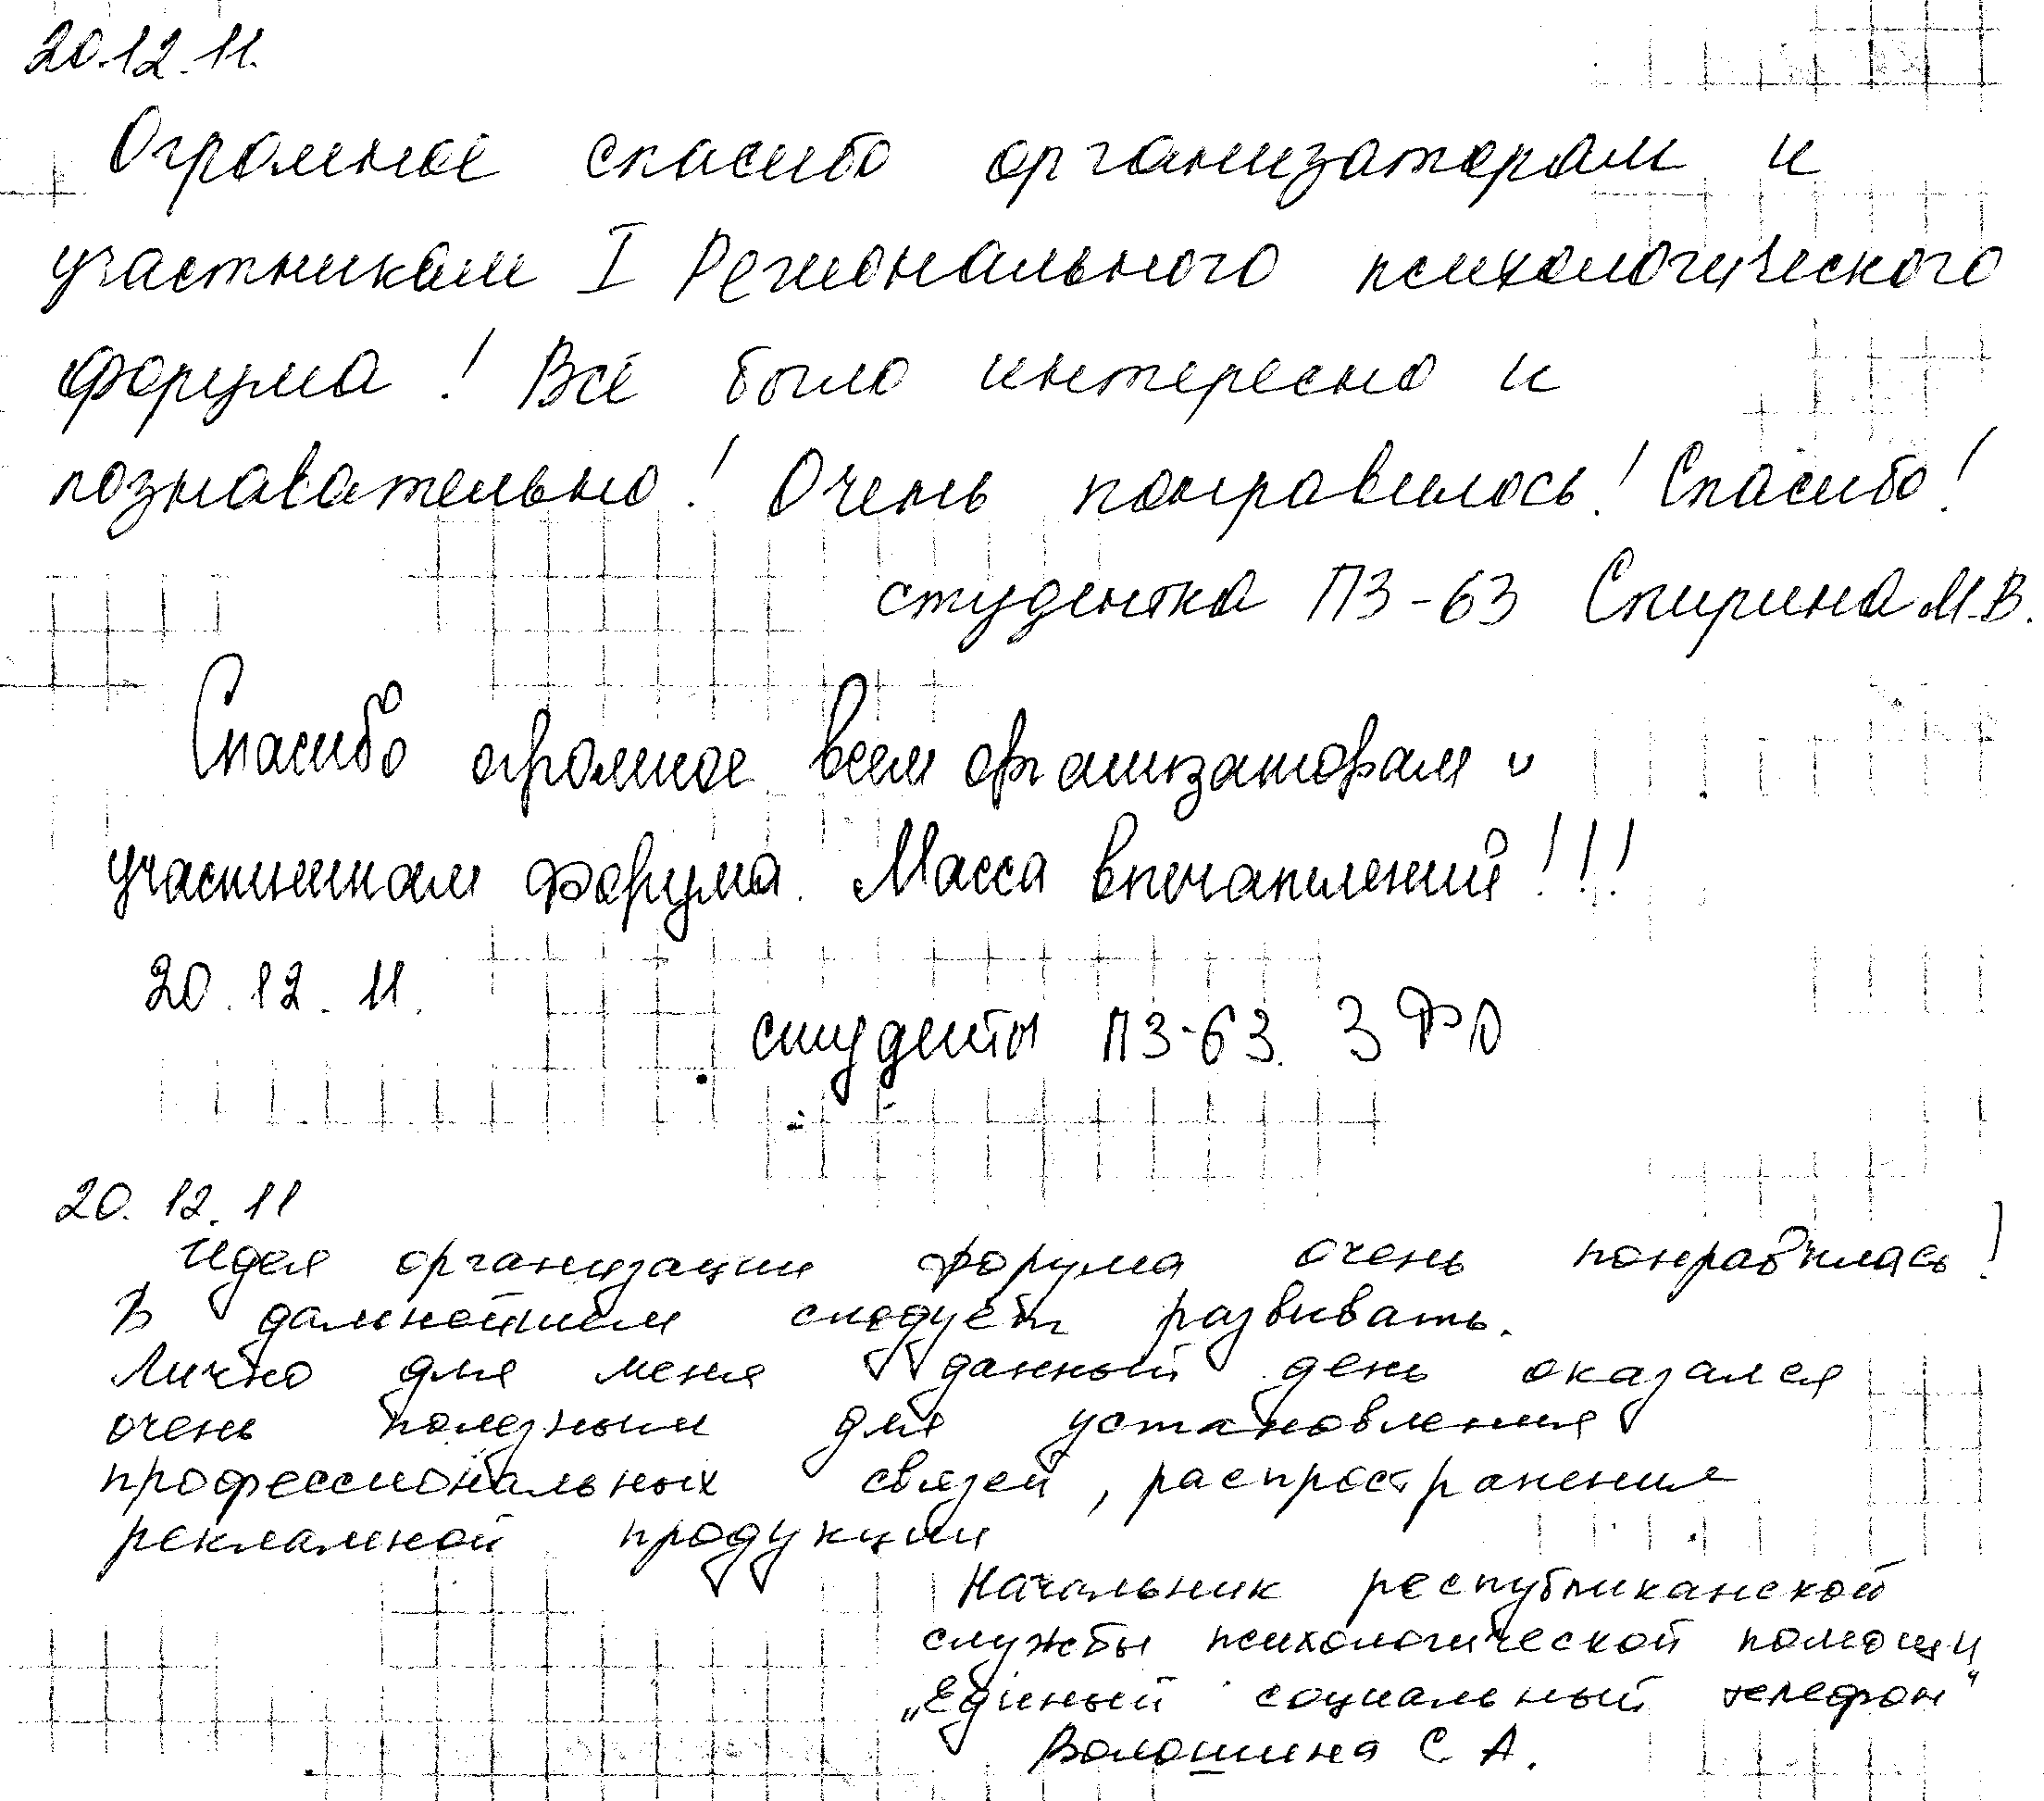 20.12.11.
Огромное спасибо организаторам и
участникам I Регионального психологического
форума! Всё было интересно и
познавательно! Очень понравилось! Спасибо!
студентка ПЗ-63 Спирина М.В.
Спасибо огромное всем организаторам и
участникам форума. Масса впечатлений!!!
20.12.11.
студенты ПЗ-63. ЗФО
20.12.11
Идея организации форума очень понравилась!
В дальнейшем следует развивать.
Лично для меня данный день оказался
очень полезным для установления
профессиональных связей, распространения
рекламной продукции
Начальник республиканской
службы психологической помощи
„Единый социальный телефон"
Волошина С А.